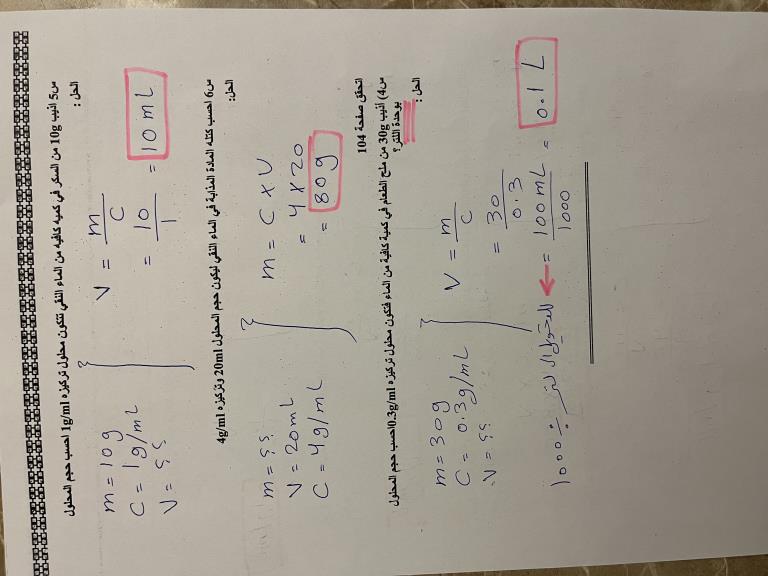 س5 اذيب 10g من السكر في كميه كافيه من الماء النقي تتكون محلول تركيزه 1g/ml احسب حجم المحلول
الحل :
m = 10g
C = 1g/mL
V = ؟؟
V = m/C
= 10/1 = 10 mL
س6 احسب كتله المادة المذابة في الماء النقي ليكون حجم المحلول 20ml وتركيزه 4g/ml
الحل:
m = ؟؟
V = 20mL
C = 4g/mL
m = C x V
= 4 x 20
= 80g
اتحقق صفحة 104
س4) اذيب 30g من ملح الطعام في كمية كافية من الماء فتكون محلول تركيزه 0.3g/ml احسب حجم المحلول
بوحدة اللتر؟
الحل :
m = 30g
C = 0.3g/mL
V = ؟؟
V = m/C
= 30/0.3
للتحويل الى لتر ÷ 1000 ← = 100mL/1000 = 0.1 L